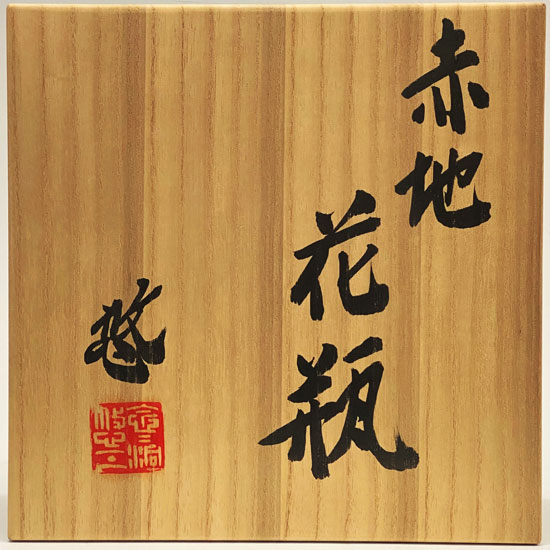 赤地
花瓶
悠